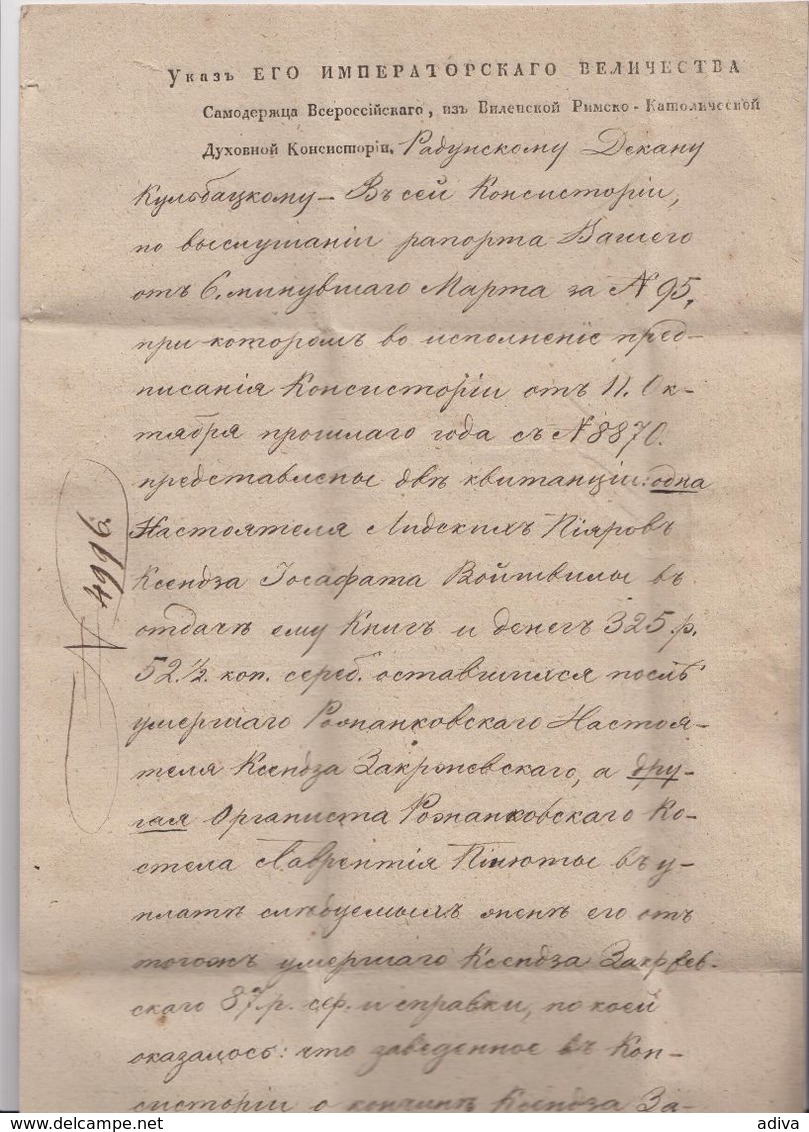 Указъ ЕГО ИМПЕРАТОРСКАГО ВЕЛИЧЕСТВА
Самодержца Всероссійскаго, изъ Виленской Римско-Католической
Духовной Консисторіи, Радунскому Декану
Кульбацкому — Въ сей Консисторіи,
по выслушаніи рапорта Вашего
отъ 6. минувшаго Марта за № 95,
при которомъ во исполненіе пред-
писанія Консисторіи отъ 11. Ок-
тября прошлаго года съ № 8870.
представлены двѣ квитанціи: одна
Настоятеля Лидскихъ Піяровъ
Ксендза Іосафата Войтвилы въ
отдачѣ ему книгъ и денегъ 325 р.
52 ½ коп. сереб. оставшихся послѣ
умершаго Рожанковскаго Настоя-
теля Ксендза Закржевскаго, а дру-
гая Органиста Рожанковскаго Ко-
стела Лаврентія Пілюты въ у-
платѣ слѣдуемыхъ женѣ его отъ
тогожъ умершаго Ксендза Закржев-
скаго 37 р. сер. и справки, по коей
оказалось: что заведенное въ Кон-
систоріи о кончинѣ Ксендза За-
№ 4996
adiva